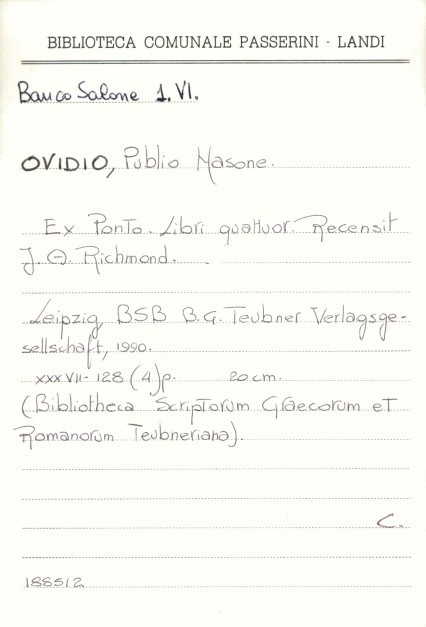 BIBLIOTECA COMUNALE PASSERINI - LANDI
Banco Salone 1. VI.
OVIDIO, Publio Nasone.
Ex Ponto. Libri quattuor. Recensit
J. A. Richmond.
Leipzig, BSB B.G. Teubner Verlagsge-
sellschaft, 1990.
XXXVII-128 (4)p. 20 cm.
(Bibliotheca Scriptorum Graecorum et
Romanorum Teubneriana).
C.
188512